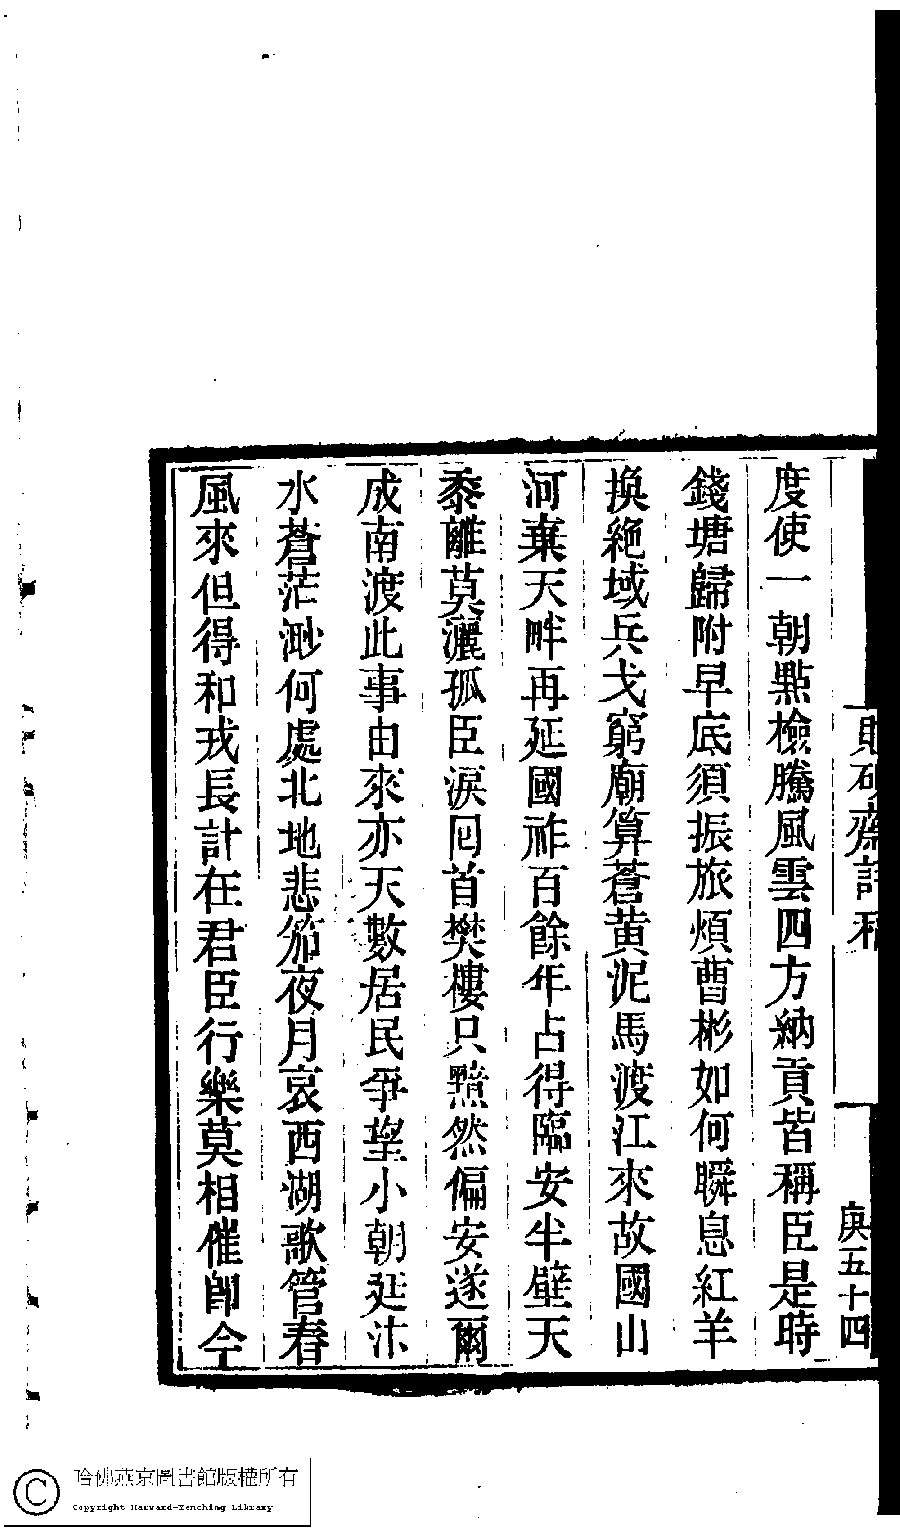 度使一朝點檢騰風雲四方納貢皆稱臣是時
錢塘歸附早底須振旅煩曹彬如何瞬息紅羊
換絕域兵戈窮廟算蒼黃泥馬渡江來故國山
河棄天畔再延國祚百餘年占得臨安半壁天
黍離莫灑孤臣淚囘首樊樓只黯然偏安遂爾
成南渡此事由來亦天數居民爭望小朝廷汴
水蒼茫渺何處北地悲笳夜月哀西湖歌管春
風來但得和戎長計在君臣行樂莫相催卽今
硏齋詩稿
庚五十四
哈佛燕京圖書館版權所有
Copyright Harvard-Yenching Library